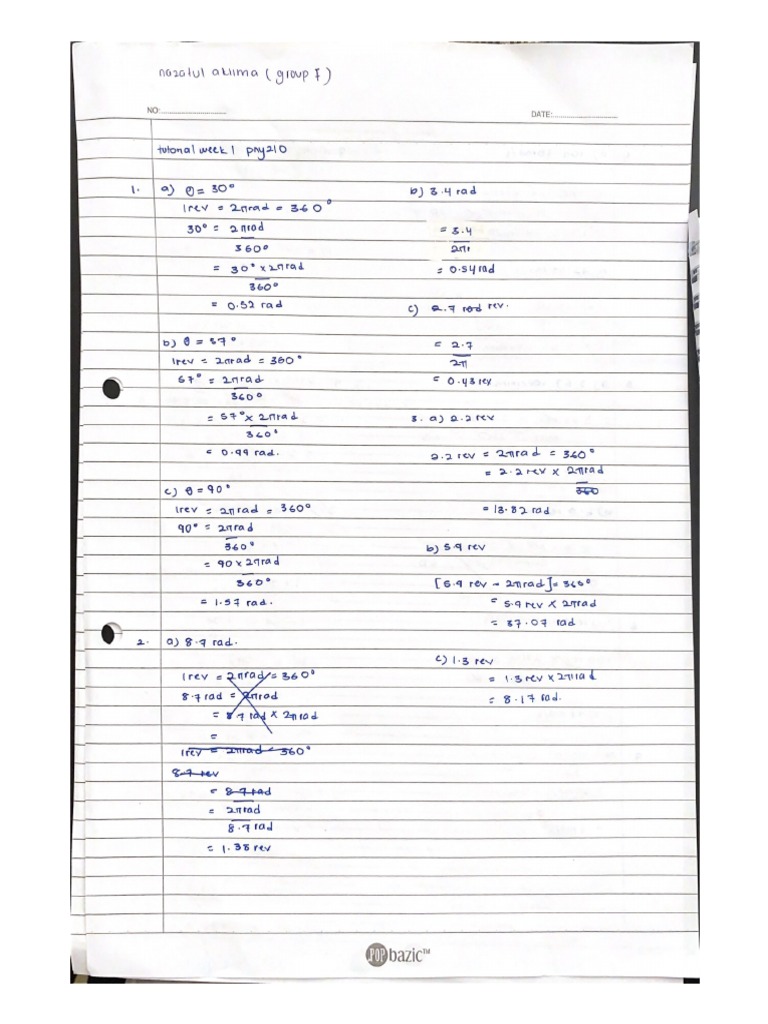 nazatul aklima (group I)
NO:
DATE:
tutorial week 1 phy210
1. a) θ = 30°
1 rev = 2π rad = 360°
30° = 2π rad
360°
= 30° × 2π rad
360°
= 0.52 rad
b) θ = 57°
1 rev = 2π rad = 360°
57° = 2π rad
360°
= 57° × 2π rad
360°
= 0.99 rad.
c) θ = 90°
1 rev = 2π rad = 360°
90° = 2π rad
360°
= 90 × 2π rad
360°
= 1.57 rad.
2. a) 8.7 rad.
1 rev = 2π rad = 360°
8.7 rad = 2π rad
= 8.7 rad × 2π rad
=
1 rev = 2π rad = 360°
8.7 rev
= 8.7 rad
= 2π rad
8.7 rad
= 1.38 rev
b) 3.4 rad
= 3.4
2π
= 0.54 rad
c) 2.7 rad rev.
= 2.7
2π
= 0.43 rev
3. a) 2.2 rev
2.2 rev = 2π rad = 360°
= 2.2 rev × 2π rad
360
= 13.82 rad
b) 5.9 rev
[5.9 rev - 2π rad] = 360°
= 5.9 rev × 2π rad
= 37.07 rad
c) 1.3 rev
= 1.3 rev × 2π rad
= 8.17 rad.
POP bazic™